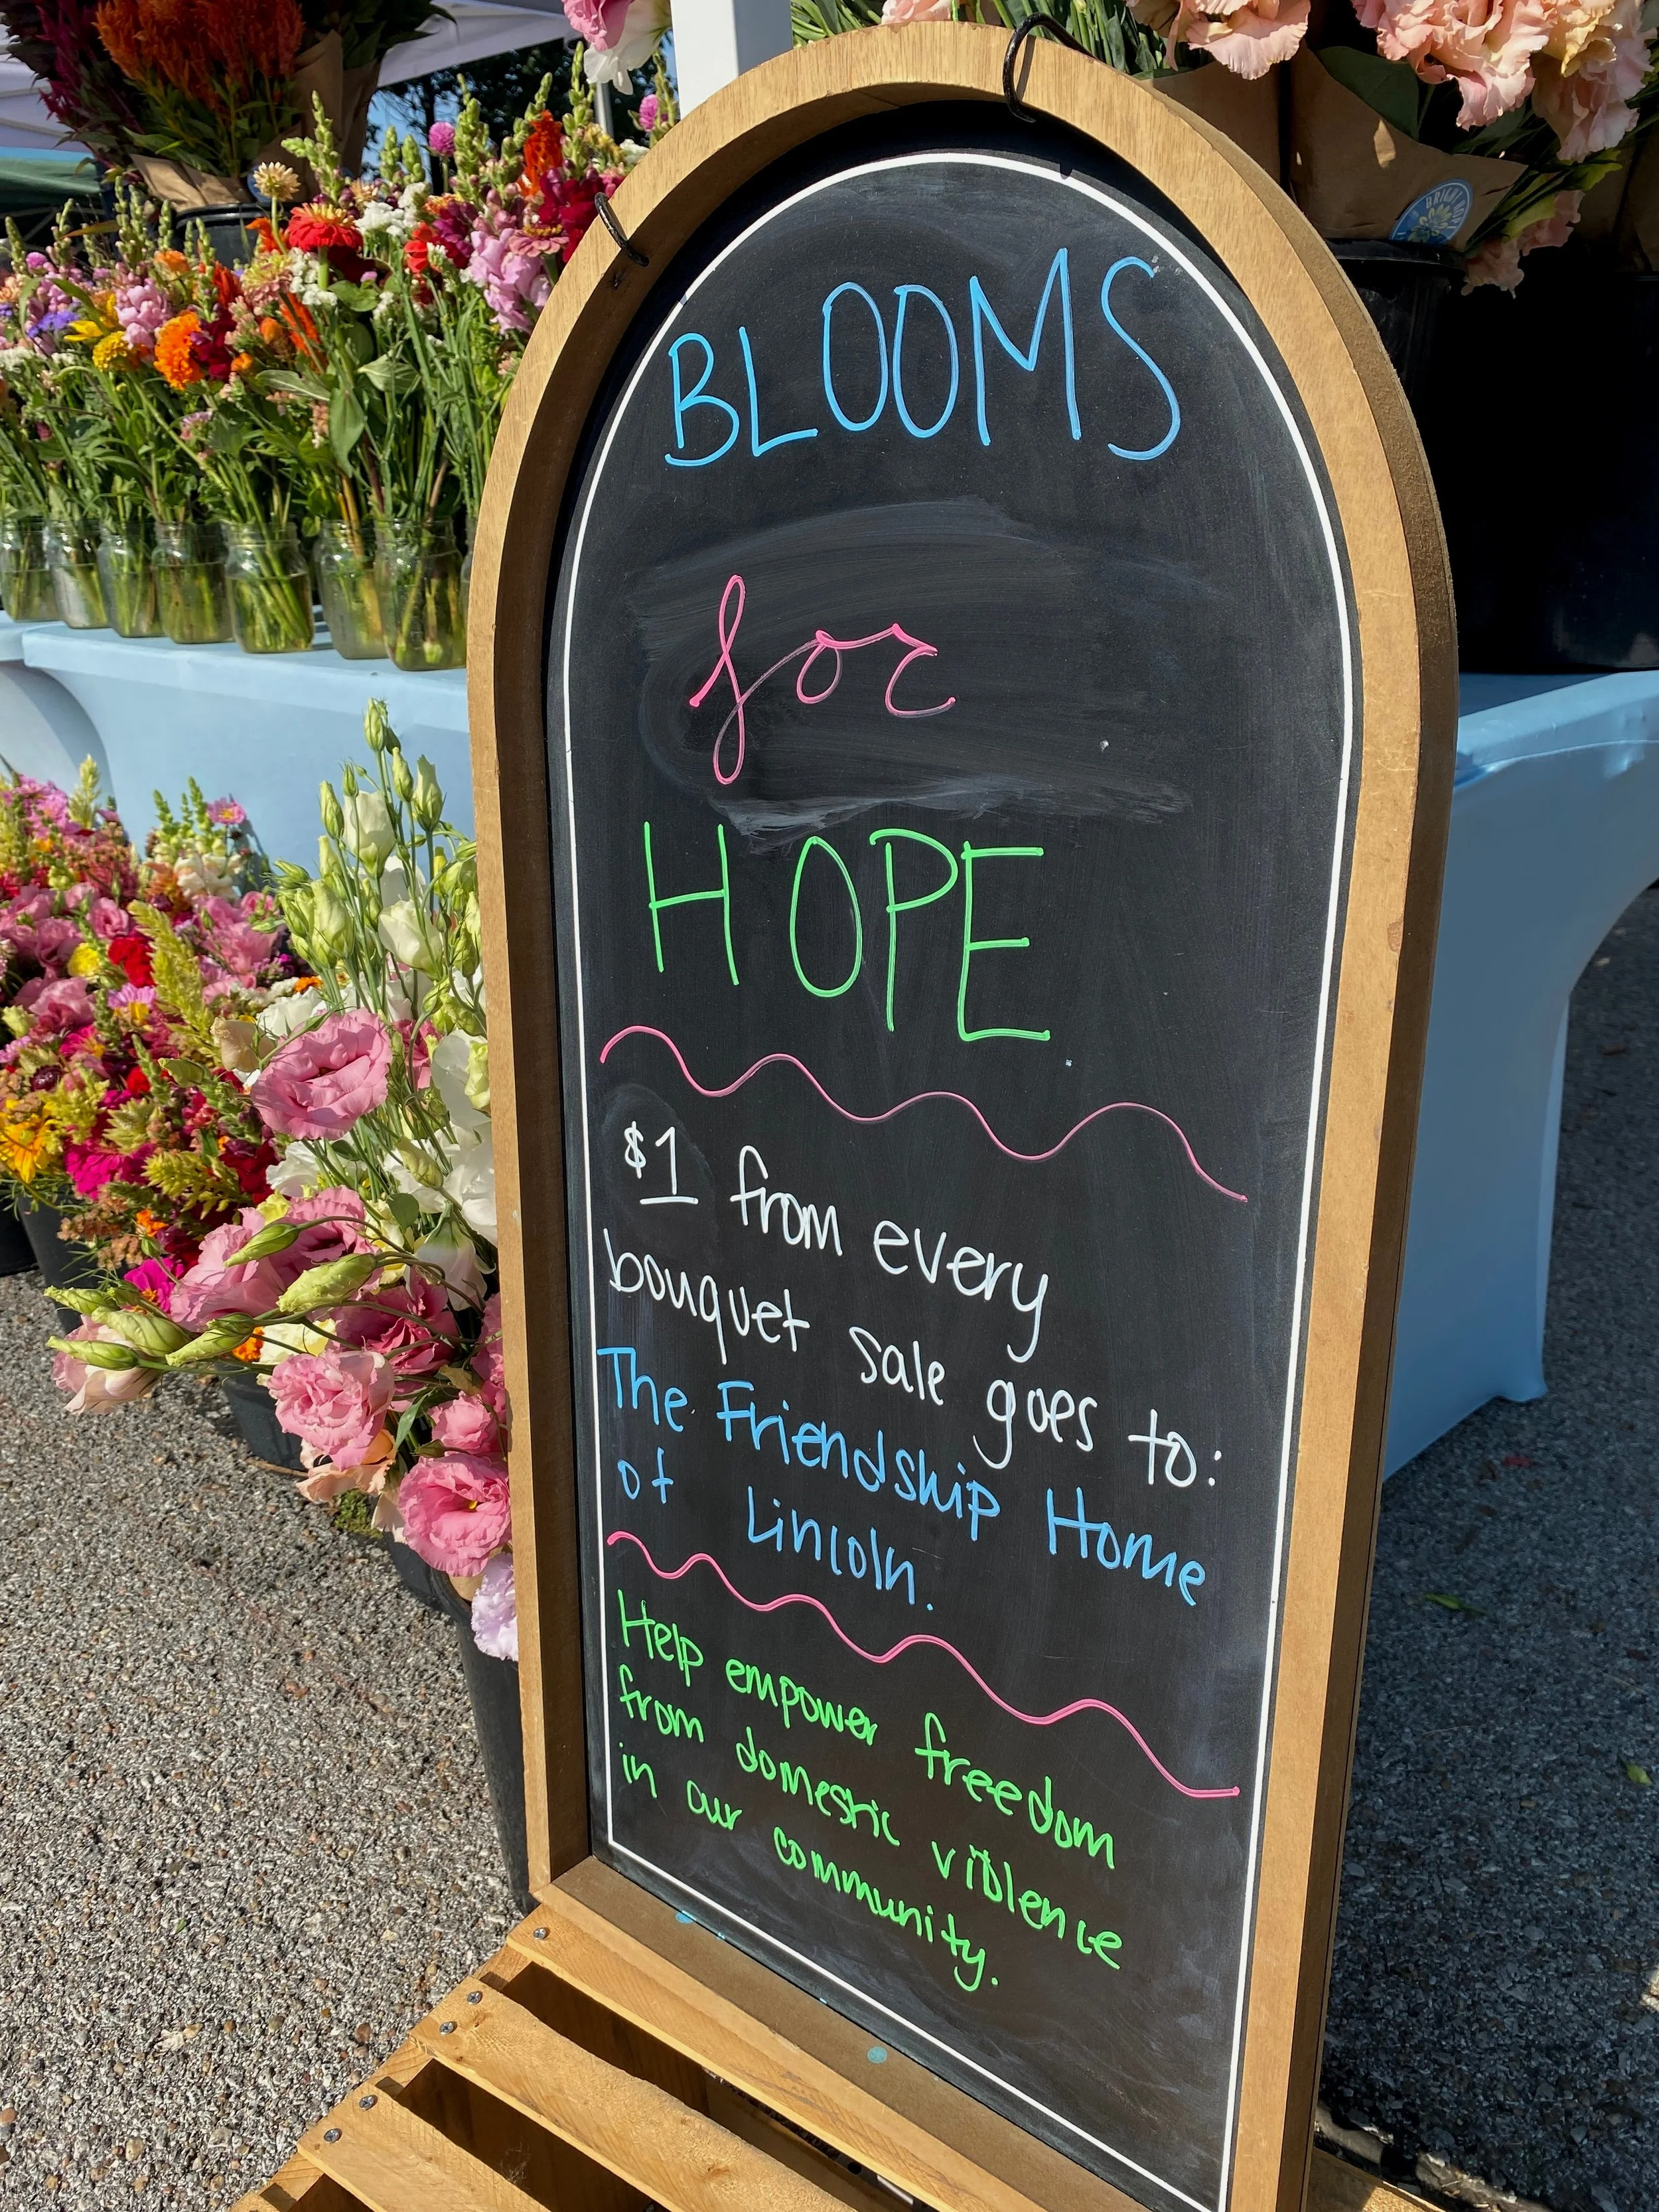 BLOOMS
for
HOPE
$1 from every
bouquet sale goes to:
The Friendship Home
of Lincoln.
Help empower freedom
from domestic violence
in our community.
BRIGHT